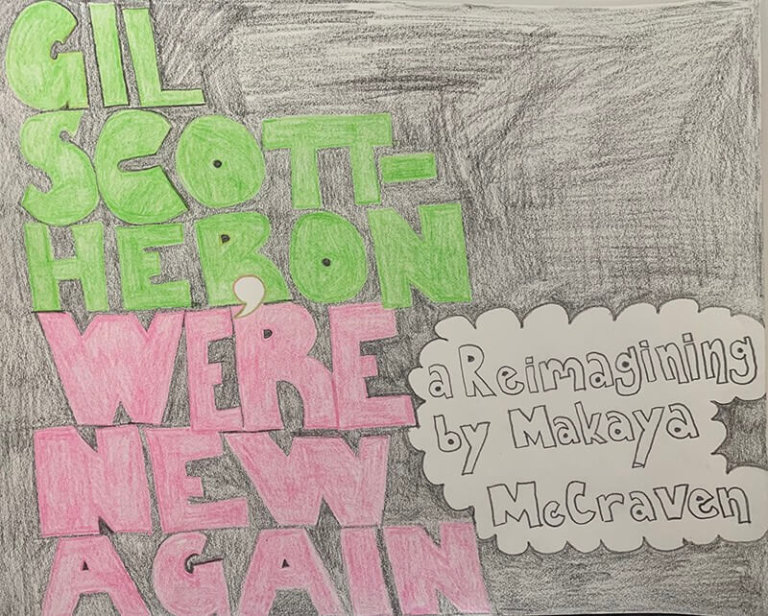 GIL
SCOTT-
HERON
WE'RE
NEW
AGAIN
a Reimagining
by Makaya
McCraven